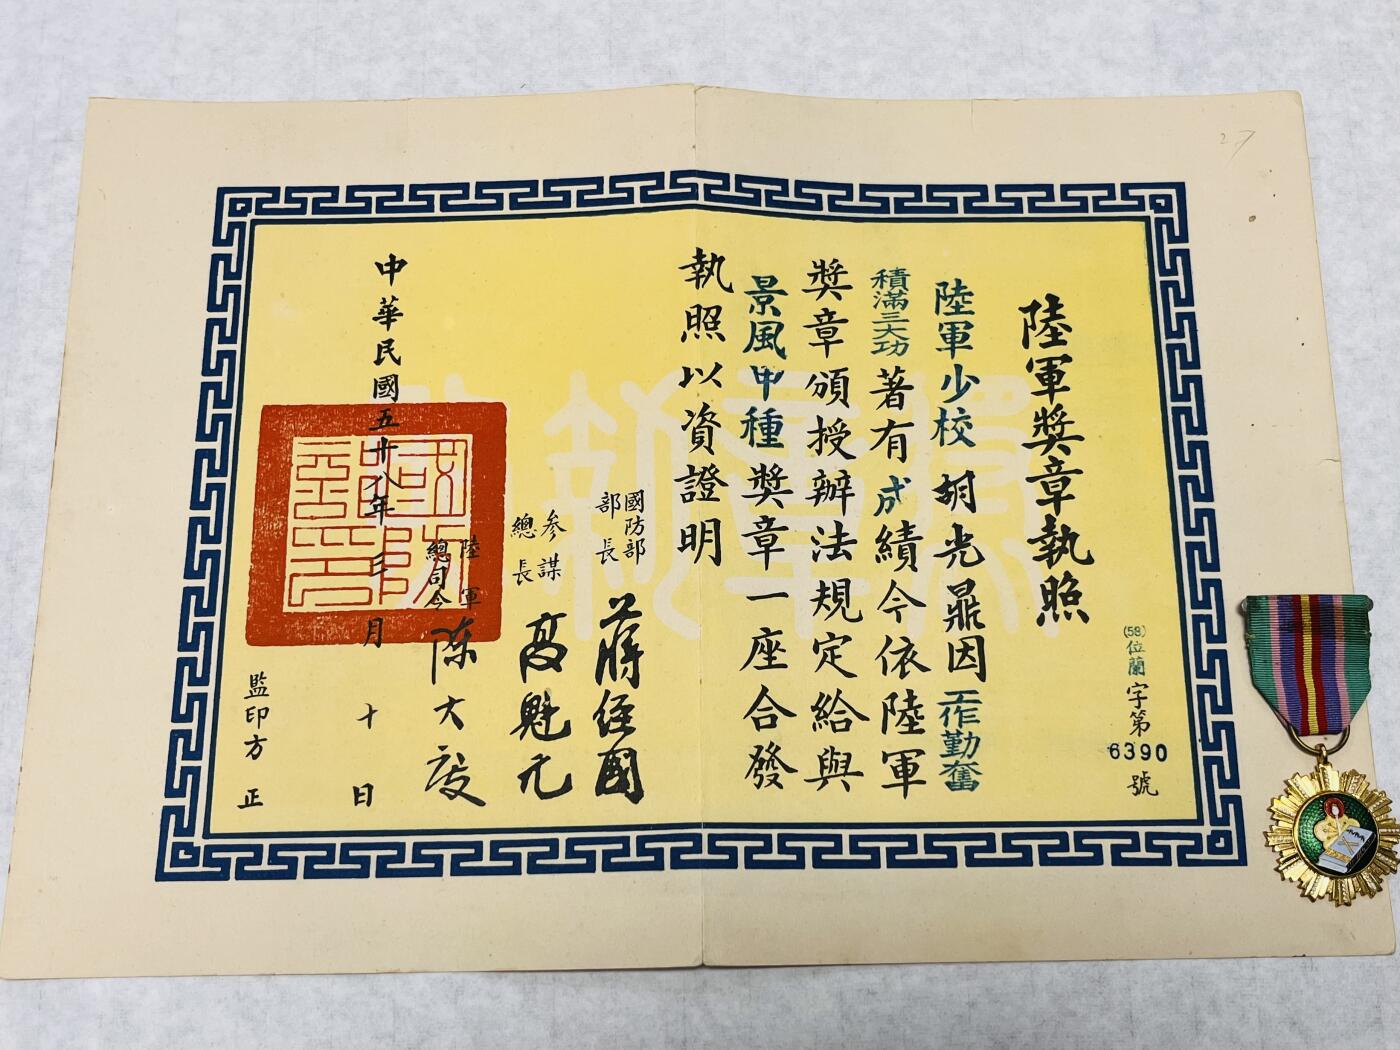 27
(58)位蘭字第6390號
陸軍獎章執照
陸軍少校胡光鼎因工作勤奮
積滿三大功著有成績今依陸軍
獎章頒授辦法規定給與
景風甲種獎章一座合發
執照以資證明
國防部
部長 蔣經國
參謀
總長 高魁元
陸軍
總司令 陳大慶
中華民國五十八年三月十日
監印方正